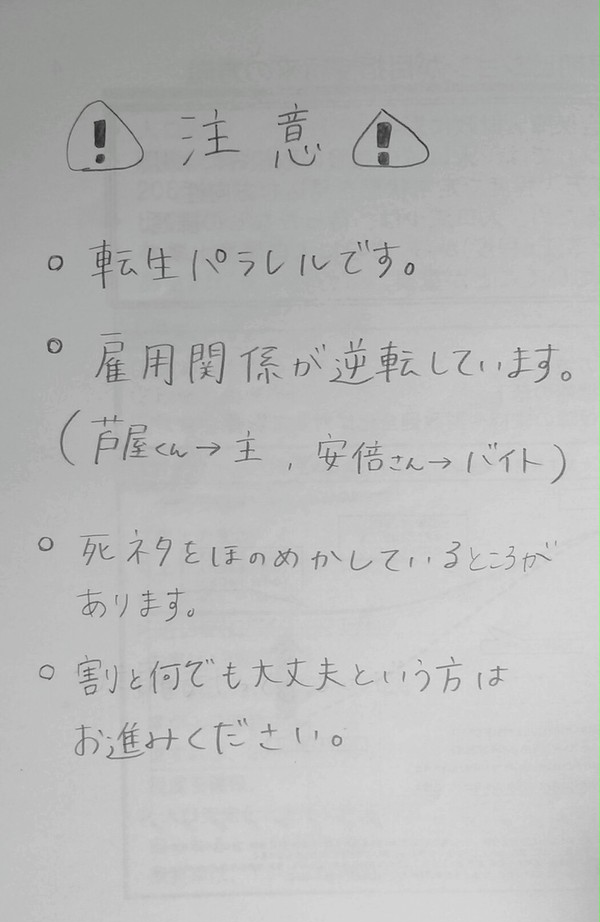 ! 注意 !
○ 転生パラレルです。
○ 雇用関係が逆転しています。
(芦屋くん→主,安倍さん→バイト)
○ 死ネタをほのめかしているところが
あります。
○ 割と何でも大丈夫という方は
お進みください。